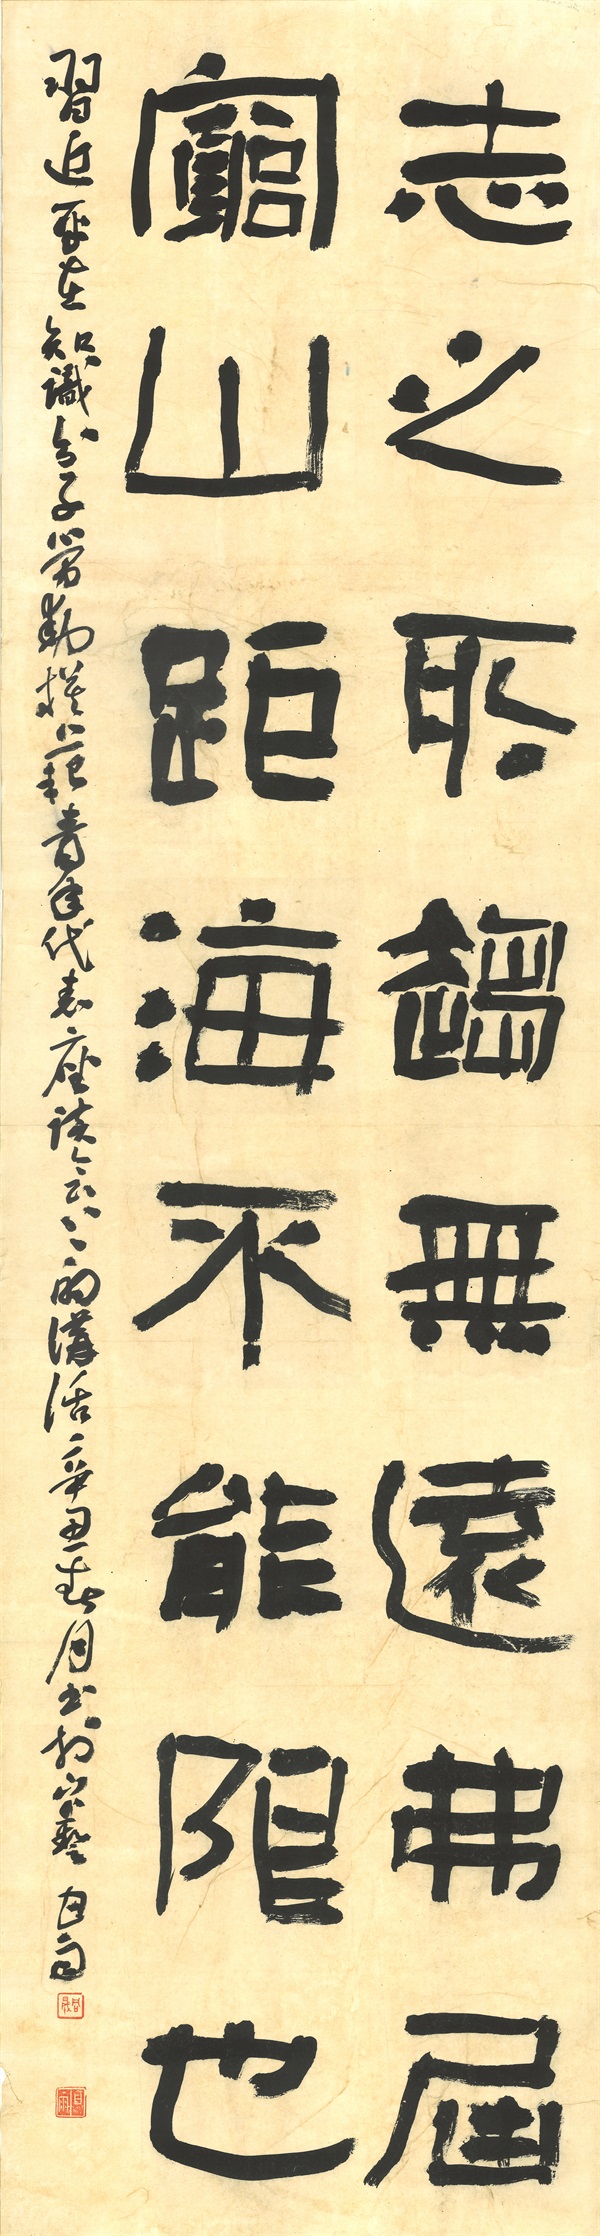 志之所趨無遠弗屆
窮山距海不能限也
習近平在知識分子勞動模範青年代表座談會上的講話辛丑春月書於京華